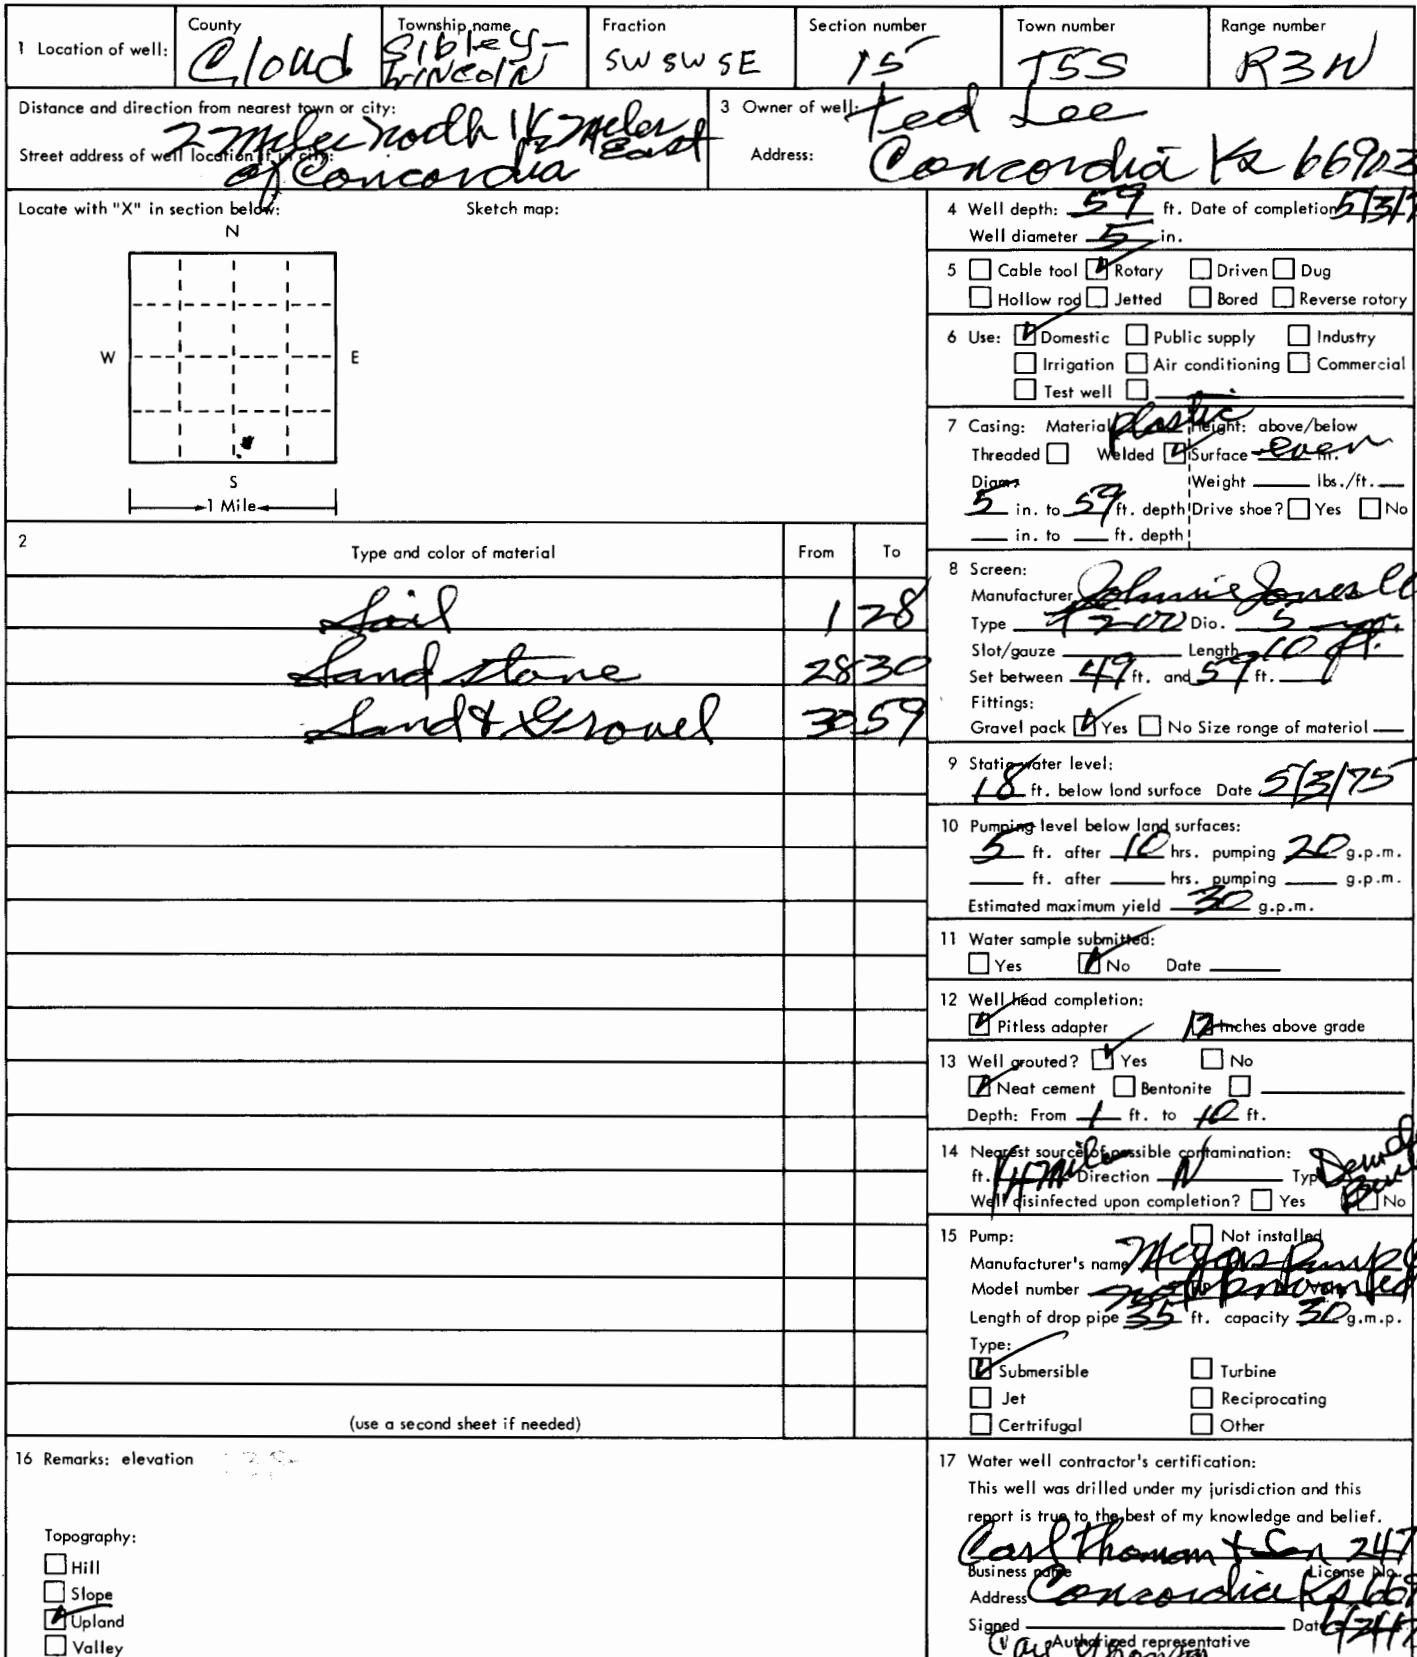 1 Location of well: County Township name Fraction Section number Town number Range number
Cloud Sibley- SW SW SE 15 T5S R3W
LINCOLN
Distance and direction from nearest town or city: 3 Owner of well: Ted Lee
2 miles north 1 1/2 miles East
Street address of well location if in city: Address: Concordia Ks 66903
of Concordia
Locate with "X" in section below: Sketch map:
N
W E
S
1 Mile
4 Well depth: 59 ft. Date of completion 5/3/7
Well diameter 5 in.
5 Cable tool Rotary Driven Dug
Hollow rod Jetted Bored Reverse rotary
6 Use: Domestic Public supply Industry
Irrigation Air conditioning Commercial
Test well
7 Casing: Material plastic Height: above/below
Threaded Welded Surface even in.
Diam. Weight lbs./ft.
5 in. to 59 ft. depth Drive shoe? Yes No
in. to ft. depth
2 Type and color of material From To
Soil 1 28
Sand stone 28 30
Sand & Gravel 30 59
(use a second sheet if needed)
8 Screen:
Manufacturer Johnnie Jones
Type 200 Dia. 5
Slot/gauze Length 10 ft.
Set between 49 ft. and 59 ft.
Fittings:
Gravel pack Yes No Size range of material
9 Static water level:
18 ft. below land surface Date 5/3/75
10 Pumping level below land surfaces:
5 ft. after 10 hrs. pumping 20 g.p.m.
ft. after hrs. pumping g.p.m.
Estimated maximum yield 30 g.p.m.
11 Water sample submitted:
Yes No Date
12 Well head completion:
Pitless adapter 12 Inches above grade
13 Well grouted? Yes No
Neat cement Bentonite
Depth: From 1 ft. to 10 ft.
14 Nearest source of possible contamination:
ft. 1/4 mile Direction N Type
Well disinfected upon completion? Yes No
15 Pump: Not installed
Manufacturer's name Pump
Model number HP
Length of drop pipe 35 ft. capacity 30 g.m.p.
Type:
Submersible Turbine
Jet Reciprocating
Certrifugal Other
16 Remarks: elevation
Topography:
Hill
Slope
Upland
Valley
17 Water well contractor's certification:
This well was drilled under my jurisdiction and this
report is true to the best of my knowledge and belief.
Carl Thoman & Son 247
Business name License No.
Address Concordia Ks 669
Signed Date
Authorized representative